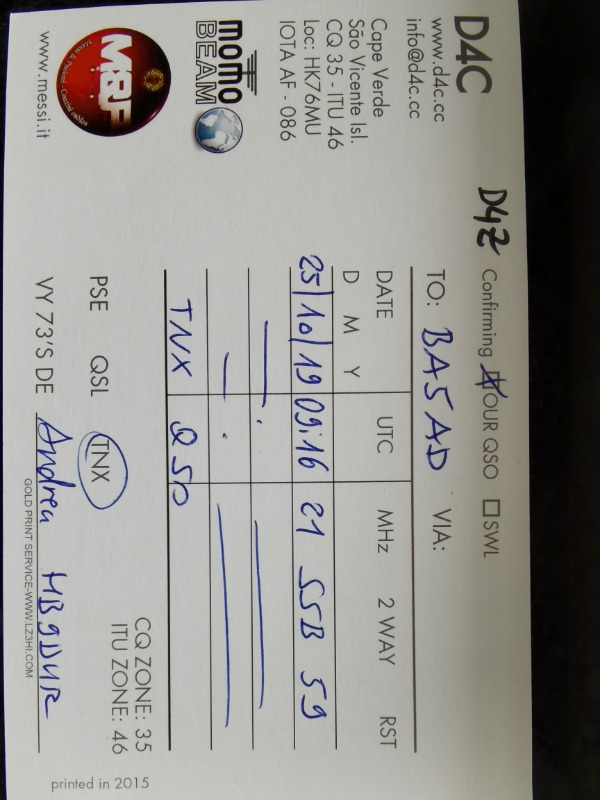 D4C
www.d4c.cc
info@d4c.cc
Cape Verde
São Vicente Isl.
CQ 35 - ITU 46
Loc: HK76MU
IOTA AF - 086
momo
BEAM
M&P
Messi & Paoloni - Coaxial cables
www.messi.it
D4Z Confirming YOUR QSO SWL
TO: BA5AD VIA:
DATE UTC MHz 2 WAY RST
D M Y
25/10/19 09:16 21 SSB 59
TNX QSO
CQ ZONE: 35
ITU ZONE: 46
PSE QSL TNX
VY 73'S DE Andrea HB9DUR
GOLD PRINT SERVICE-WWW.LZ3HI.COM
printed in 2015